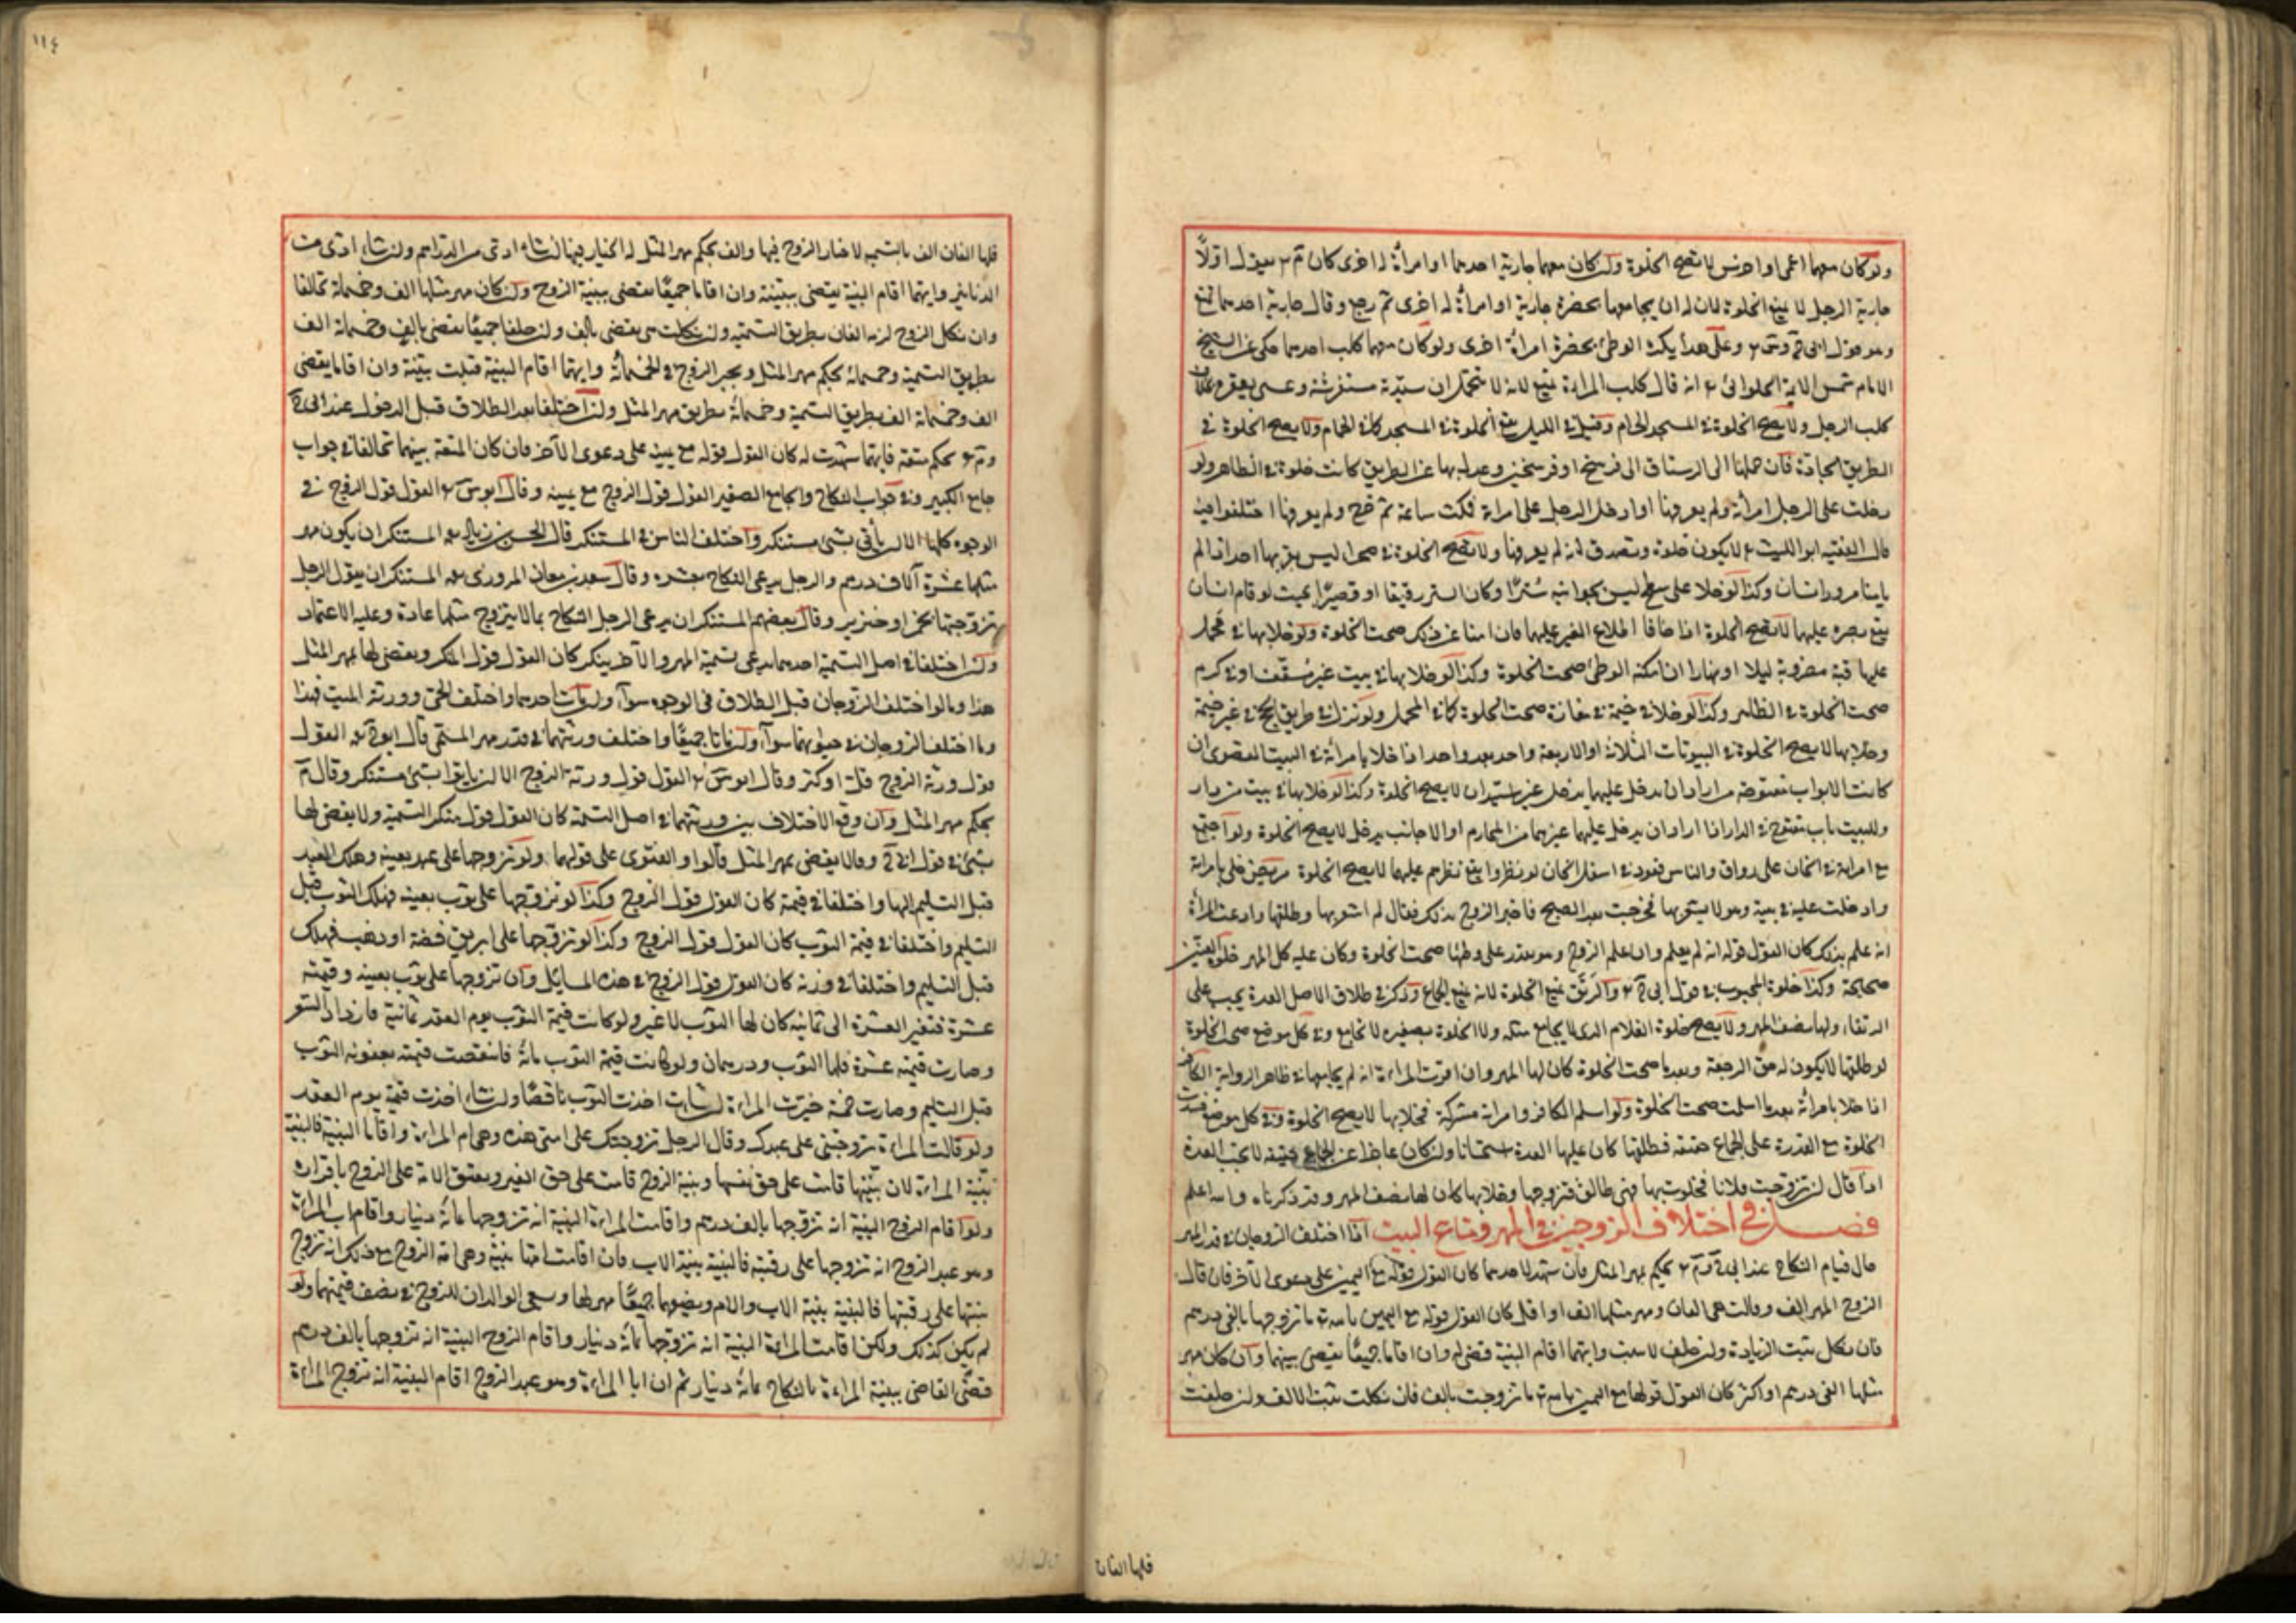 ولو كان معهما اعمى او اخرس لا تصح الخلوة ولو كان معهما جارية احدهما او امرأة له اخرى كان م يقول اولاً
جارية الرجل لا تمنع الخلوة لان له ان يجامعها بحضرة جارية او امرأة له اخرى ثم رجع وقال جارية احدهما تمنع
وهو قول ابي ح وس وعلى هذا يكره الوطئ بحضرة امرأة اخرى ولو كان معهما كلب احدهما حكى عن الشيخ
الامام شمس الاية الحلوائي انه قال كلب المراة يمنع لانه لا يتحمل ان سيدته مستفرشة وعسى يعقره
كلب الرجل ولا يصح الخلوة في المسجد والحمام وقيل في الليل يصح الخلوة في المسجد كما في الحمام ولا يصح الخلوة في
الطريق الجادة فان حملها الى الرستاق الى فرسخ او فرسخين وعدل بها عن الطريق كانت خلوة في الظاهر ولو
دخلت على الرجل امرأته ولم يعرفها او ادخل الرجل على امراة فمكث ساعة ثم خرج ولم يعرفها اختلفوا فيه
قال الفقيه ابو الليث لا يكون خلوة وتصدق انه لم يعرفها ولا يصح الخلوة في صحراء ليس بقربها احد اذا لم
يأمنا مرور انسان وكذا لو خلا على سطح ليس بجوانبه ستراً وكان الستر رقيقا او قصيرًا بحيث لو قام انسان
يقع بصره عليهما لا يصح الخلوة اذا خافا اطلاع الغير عليهما فان امنا عن ذلك صحت الخلوة ولو خلا بها في محمل
عليها قبة مضروبة ليلا او نهارا ان امكنه الوطئ صحت الخلوة وكذا لو خلا بها في بيت غير مسقف او في كرم
صحت الخلوة في الظاهر وكذا لو خلا في خيمة في مفازة صحت الخلوة كما في المحمل ولو نزل في طريق الحج في غير خيمة
وخلا بها لا يصح الخلوة في البيوتات الثلاثة او الاربعة واحد بعد واحد اذا خلا بامرأته في البيت القصوى ان
كانت الابواب مفتوحة من اراد ان يدخل عليهما يدخل غير استيذان لا يصح الخلوة وكذا لو خلا بها في بيت من دار
وللبيت باب مفتوح في الدار اذا اراد ان يدخل عليهما غيرهما من المحارم او الاجانب يدخل لا يصح الخلوة ولو اجتمع
مع امراته في الخان على رواق والناس قعود في اسفل الخان لو نظروا يقع نظرهم عليهما لا يصح الخلوة مريض خلى بامراة
وادخلت عليه في بيته وهو لا يشعر بها فخرجت بعد الصبح فاخبر الزوج بذلك فقال لم اشعر بها وطلقها وادعت المرأة
انه علم بذلك كان القول قوله انه لم يعلم وان علم الزوج وهو يقدر على وطئها صحت الخلوة وكان عليه كل المهر خلوة العنين
صحيحة وكذا خلوة المجبوب في قول ابي ح والرتق يمنع الخلوة لانه يمنع الجماع وذكر في طلاق الاصل العدة يجب على
الرتقاء ولها نصف المهر ولا يصح خلوة الغلام الذي لا يجامع مثله ولا الخلوة بصغيرة لا تجامع وفي كل موضع صح الخلوة
لو طلقها لا يكون له حق الرجعة وبعد ما صحت الخلوة كان لها المهر وان اقرت المراة انه لم يجامعها في ظاهر الرواية الكافر
اذا خلا بامرأته بعد ما اسلمت صحت الخلوة ولو اسلم الكافر وامراته مشركة فخلا بها لا يصح الخلوة وفي كل موضع فسدت
الخلوة مع القدرة على الجماع حقيقة فطلقها كان عليها العدة استحسانا وان كان عاجزا عن الجماع حقيقة لا يجب العدة
اذا قال ان تزوجت فلانا فخلوت بها فهي طالق فتزوجها وخلا بها كان لها نصف المهر وقد ذكرناه والله اعلم
فصل في اختلاف الزوجين في المهر ومتاع البيت اذا اختلف الزوجان في قدر المهر
حال قيام النكاح عند ابي ح وم يحكم بمهر المثل فان شهد لاحدهما كان القول قوله مع اليمين على دعوى الآخر فان قال
الزوج المهر الف وقالت هي الفان ومهر مثلها الف او اقل كان القول قوله مع اليمين بالله ما تزوجها بالفي درهم
فان نكل يثبت الزيادة وان حلف لا يثبت وايهما اقام البينة قضى له وان اقاما جميعًا يقضى بينهما وان كان مهر
مثلها الفي درهم او اكثر كان القول قولها مع اليمين بالله ما تزوجت بالف فان نكلت يثبت الالف وان حلفت
فلها الفان
١١٤
فلها الفان الف بالتسمية لا خيار للزوج فيها والف بحكم مهر المثل له الخيار فيها ان شاء ادى من الدراهم وان شاء ادى من
الدنانير وايهما اقام البينة يقضى ببينته وان اقاما جميعًا يقضى ببينة الزوج وان كان مهر مثلها الف وخمسمائة تحالفا
وان نكل الزوج لزمه الفان بطريق التسمية وان نكلت هي يقضى بالف وان حلفا جميعًا يقضى بالف وخمسمائة الف
بطريق التسمية وخمسمائة بحكم مهر المثل ويخير الزوج في الخمسمائة وايهما اقام البينة قبلت بينته وان اقاما يقضى
الف وخمسمائة الف بطريق التسمية وخمسمائة بطريق مهر المثل وان اختلفا بعد الطلاق قبل الدخول عند ابي ح
وم يحكم متعة فايهما شهدت له كان القول قوله مع يمينه على دعوى الآخر فان كان المتعة بينهما تحالفا في جواب
جامع الكبير وفي جواب النكاح والجامع الصغير القول قول الزوج مع يمينه وقال ابو س القول قول الزوج في
الوجوه كلها الا ان يأتي بشئ مستنكر واختلف الناس في المستنكر قال الحسن بن زياد المستنكر ان يكون مهر
مثلها عشرة آلاف درهم والرجل يدعى النكاح بعشرة وقال سعد بن معاذ المروزي المستنكر ان يقول الرجل
تزوجتها بخمر او خنزير وقال بعضهم المستنكر ان يدعى الرجل النكاح بما لا يتزوج مثلها عادة وعليه الاعتماد
وان اختلفا في اصل التسمية احدهما يدعى تسمية المهر والآخر ينكر كان القول قول المنكر ويقضى لها بمهر المثل
هذا وما لو اختلف الزوجان قبل الطلاق في الوجوه سواء وان مات احدهما واختلف الحي وورثة الميت فهذا
وما اختلف الزوجان في حيوتهما سواء وان ماتا جميعًا واختلف ورثتهما في قدر مهر المسمى قال ابو ح القول
قول ورثة الزوج قل او كثر وقال ابو س القول قول ورثة الزوج الا ان يأتوا بشئ مستنكر وقال م
يحكم مهر المثل وان وقع الاختلاف بين ورثتهما في اصل التسمية كان القول قول منكر التسمية ولا يقضى لها
بشئ في قول ابي ح وقالا يقضى بمهر المثل قالوا والفتوى على قولهما ولو تزوجها على عبد بعينه وهلك العبد
قبل التسليم اليها واختلفا في قيمته كان القول قول الزوج وكذا لو تزوجها على ثوب بعينه فهلك الثوب قبل
التسليم واختلفا في قيمة الثوب كان القول قول الزوج وكذا لو تزوجها على ابريق فضة او ذهب فهلك
قبل التسليم واختلفا في وزنه كان القول قول الزوج في هذه المسايل وان تزوجها على ثوب بعينه وقيمته
عشرة فتغير العشرة الى ثمانية كان لها الثوب لا غير ولو كانت قيمة الثوب يوم العقد ثمانية فازداد السعر
وصارت قيمته عشرة فلها الثوب ودرهمان ولو كانت قيمة الثوب مائة فانتقصت قيمته بعفونة الثوب
قبل التسليم وصارت خمسة خيرت المراة ان شاءت اخذت الثوب ناقصًا وان شاء اخذت قيمته يوم العقد
ولو قالت المراة تزوجتني على عبدك وقال الرجل تزوجتك على امتي هذه وهي ام المراة واقاما البينة فالبينة
بينة المراة لان بينتها قامت على حق نفسها وبينة الزوج قامت على حق الغير ويعتق الامة على الزوج باقراره
ولو اقام الزوج البينة انه تزوجها بالف درهم واقامت المراة البينة انه تزوجها بمائة دينار واقام اب المراة
وهو عبد الزوج انه تزوجها على رقبته فالبينة بينة الاب فان اقامت امها بينة وهي امة الزوج مع ذلك انه تزوج
بنتها على رقبتها فالبينة بينة الاب والام ونصفهما جميعًا مهر لها ويسعى الوالدان للزوج في نصف قيمتهما ولو
لم يكن كذلك ولكن اقامت المراة البينة انه تزوجها بمائة دينار واقام الزوج البينة انه تزوجها بالف درهم
فقضى القاضي ببينة المراة بالنكاح بمائة دينار ثم ان ابا المراة وهو عبد الزوج اقام البينة انه تزوج المراة